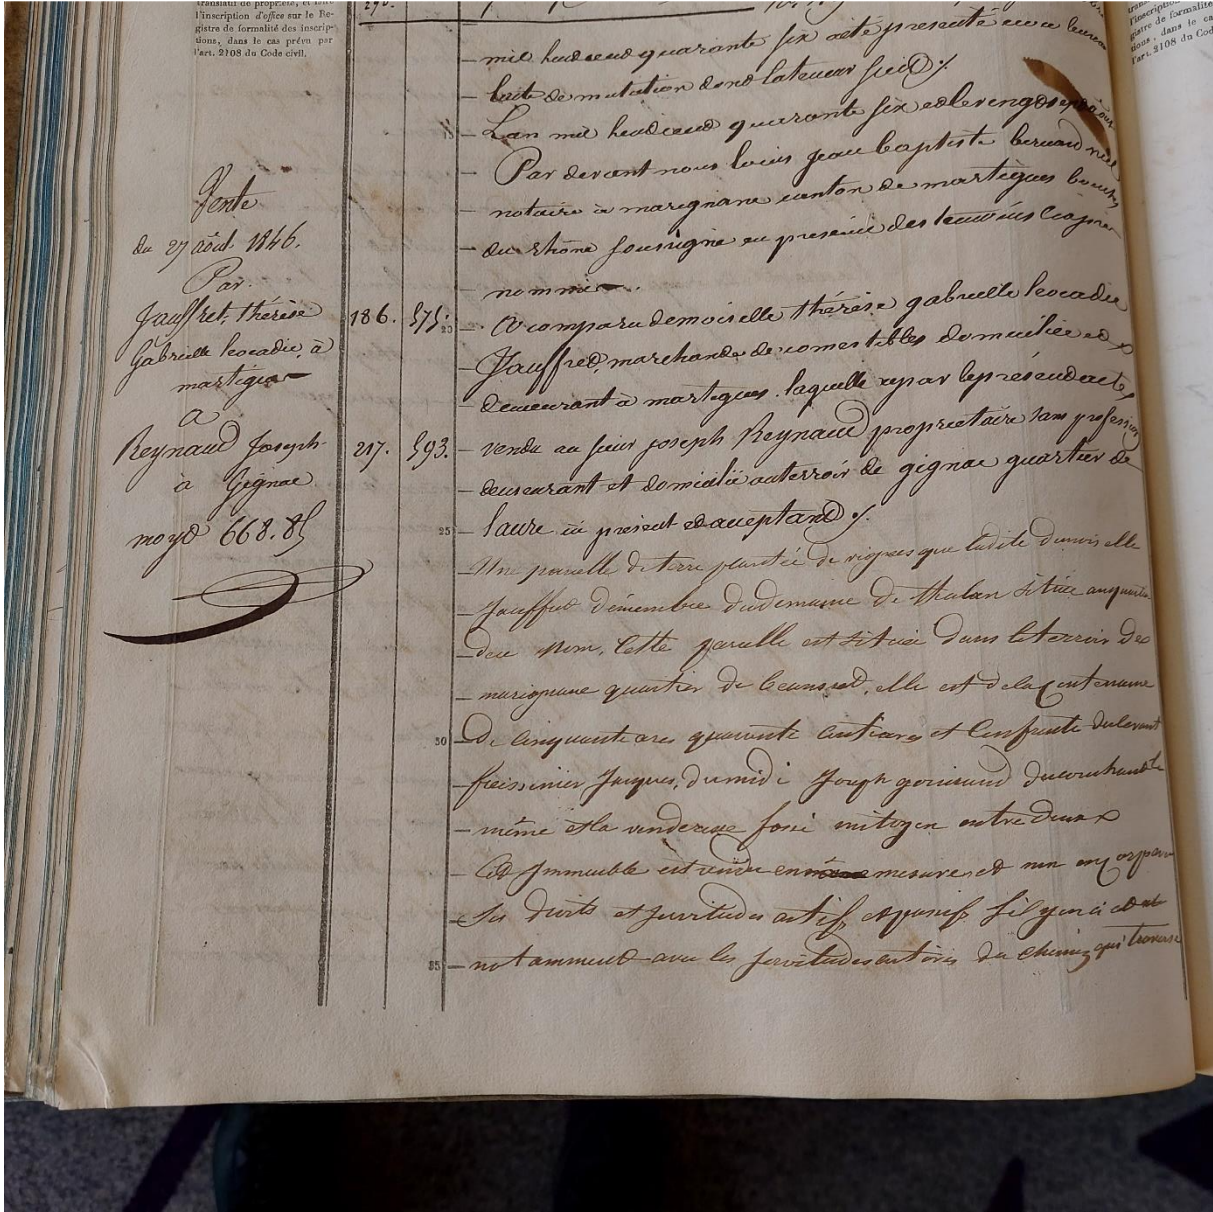 translatif de propriété, et faire
l'inscription d'office sur le Re-
gistre de formalité des inscrip-
tions, dans le cas prévu par
l'art. 2108 du Code civil.
Vente
du 27 août 1846.
Par
Jauffret, thérèse
Gabrielle leocadie, à
martigues
a
Reynaud Joseph
à Gignac
moy.t 668.85
186. 575.
217. 593.
mil huit cent quarante six a été presenté en ce bureau
lacte de mutation dont la teneur suit
Lan mil huit cent quarante six et le vingt sept aout
Par devant nous louis jean baptiste bernard
notaire à marignane canton de martigues bouches
du rhône soussigné en presence des temoins ci après
nommés
20
A comparu demoiselle thérèse gabrielle leocadie
Jauffret, marchande de comestibles domiciliée et
demeurant à martigues. laquelle a par le présent acte
vendu au sieur joseph Reynaud proprietaire sans profession
demeurant et domicilié au terroir de gignac quartier de
25
laure ici present et acceptant
Une parcelle de terre plantée de vignes que ladite demoiselle
Jauffret démembre du domaine de situé au quartier
de ce nom. Cette parcelle est située dans le terroir de
marignane quartier de elle est de la Contenance
30
De Cinquante ares quarante centiares et Confronte du levant
Jacques, du midi Joseph du couchant le
même et la venderesse fossé mitoyen entre deux
Cet Immeuble est vendu en mesure et non en corps avec
Ses droits et servitudes actifs et passifs s'il y en a et
35
notamment avec les servitudes du chemin qui traverse
l'inscription
gistre de formalité
tions, dans le cas
l'art. 2108 du Code